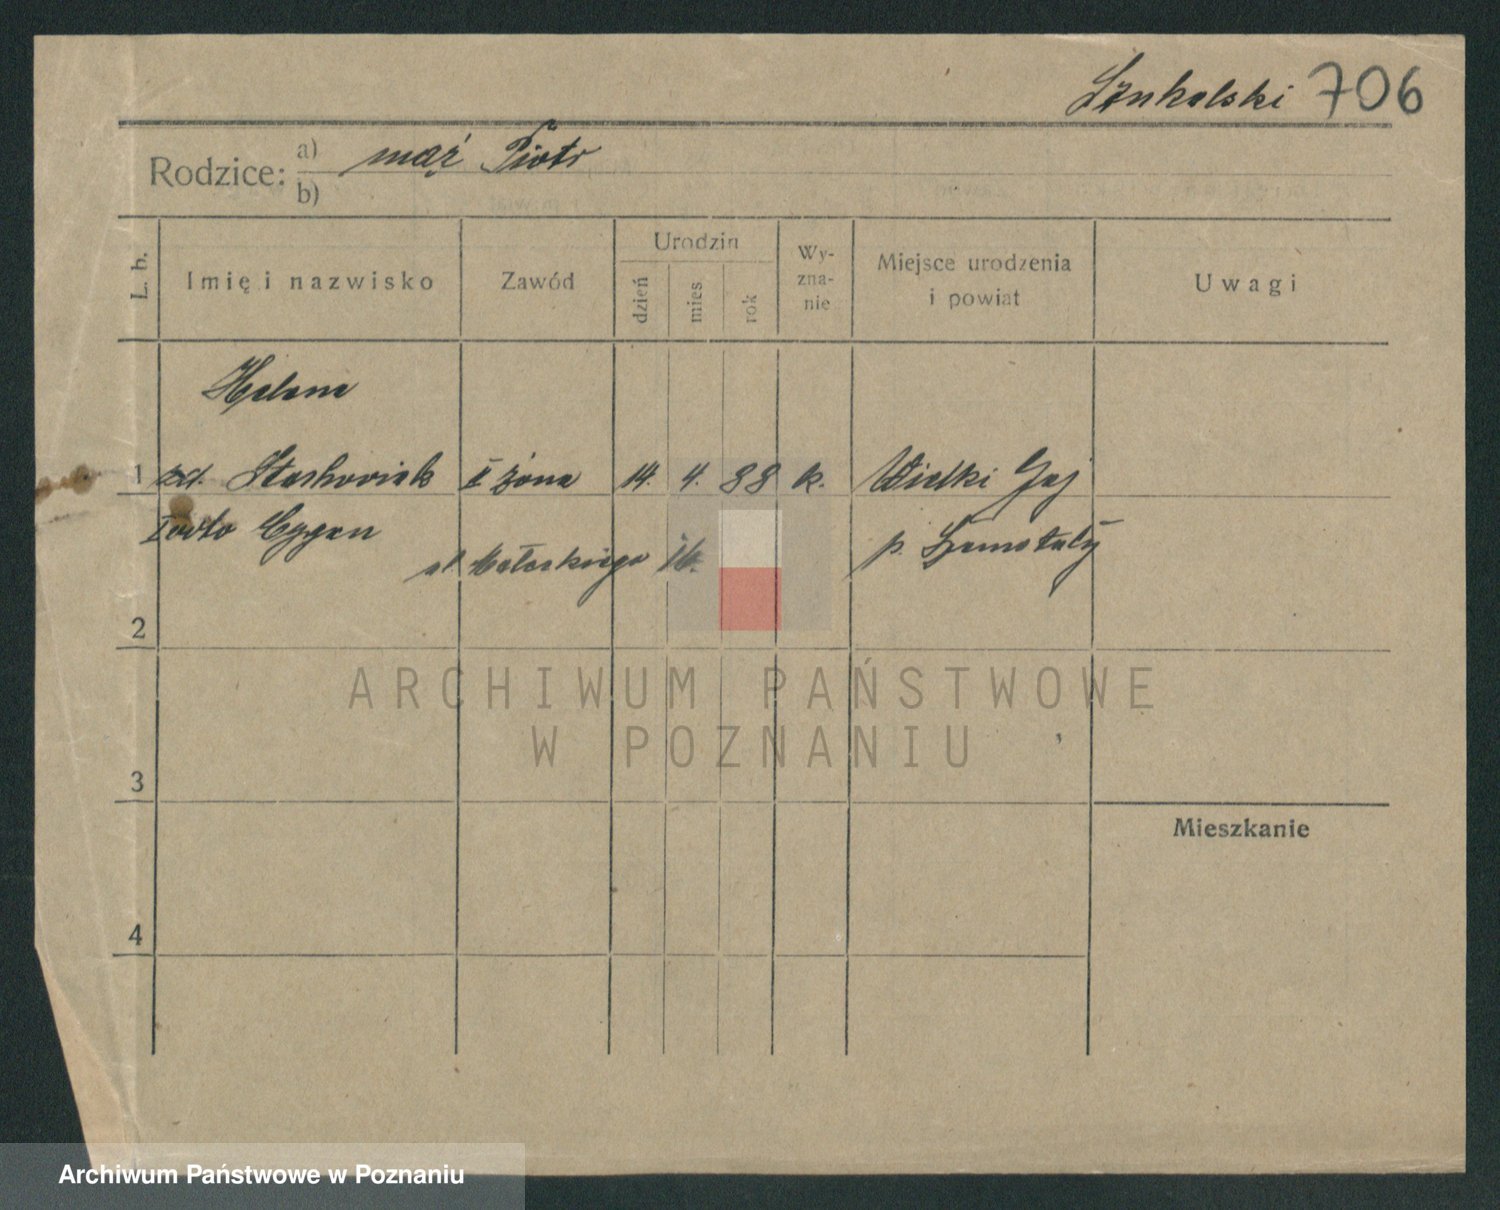 Szukalski 706
Rodzice: a) mąż Piotr
b)
L. b.
Imię i nazwisko
Zawód
Urodzin
dzień
mies
rok
Wy-
zna-
nie
Miejsce urodzenia
i powiat
Uwagi
Helena
1 zd. Stachowiak II żona 14. 4. 88 k. Wielki Gaj
Iovto Cygan
ul. Małeckiego 16. p. Szamotuły
2
3
4
Mieszkanie
ARCHIWUM PAŃSTWOWE
W POZNANIU
Archiwum Państwowe w Poznaniu